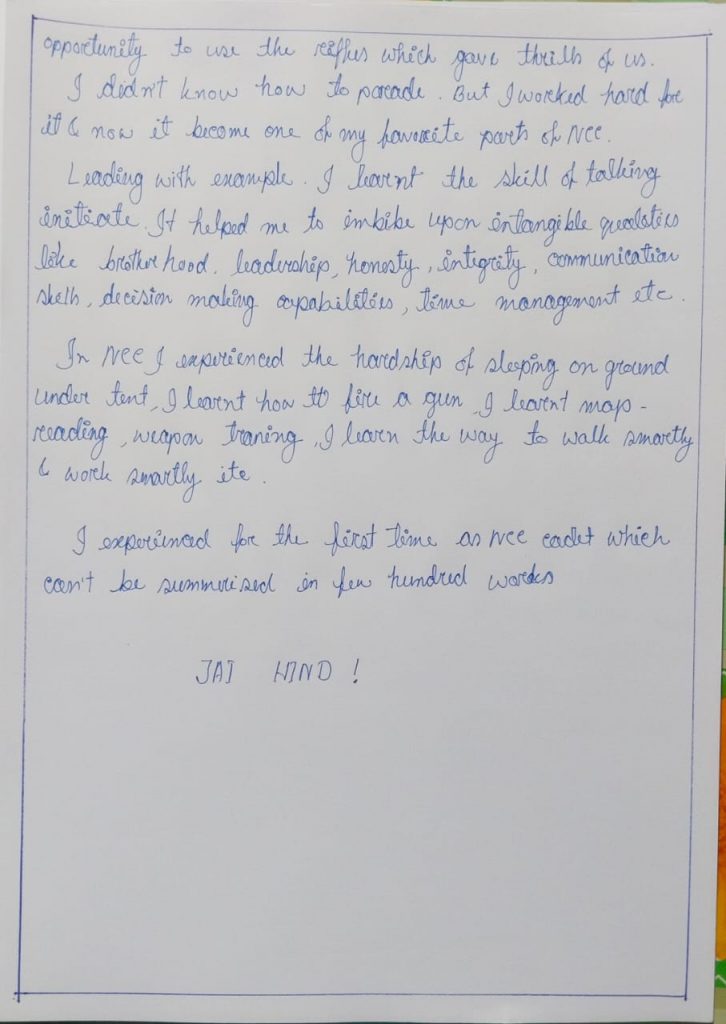 opportunity to use the riffles which gave thrills of us.
I didn't know how to parade. But I worked hard for
it & now it become one of my favorite parts of NCC.
Leading with example. I learnt the skill of talking
initiate. It helped me to imbibe upon intangible qualities
like brotherhood, leadership, honesty, integrity, communication
skells, decision making capabilities, time management etc.
In NCC I experienced the hardship of sleeping on ground
under tent, I learnt how to fire a gun, I learnt map-
reading, weapon traning, I learn the way to walk smartly
& work smartly etc.
I experienced for the first time as NCC cadet which
can't be summerised in few hundred words
JAI HIND !